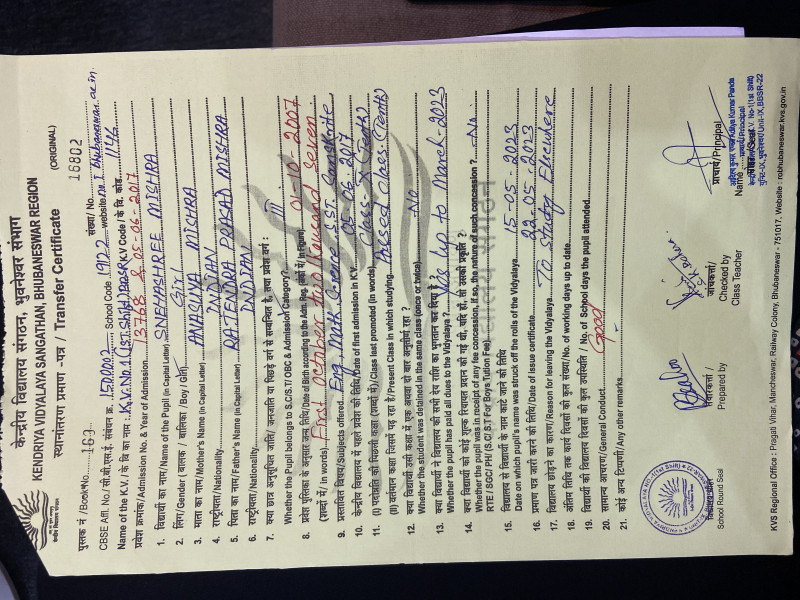 केन्द्रीय विद्यालय संगठन, भुवनेश्वर संभाग
KENDRIYA VIDYALAYA SANGATHAN, BHUBANESWAR REGION
स्थानांतरण प्रमाण -पत्र / Transfer Certificate
(ORIGINAL)
पुस्तक नं /BookNo 163 संख्या/ No. 16802
CBSE Affl. No./ सी.बी.एस.ई. संबंधन क्र. 1500002 School Code 1922 website no.1 bhubaneswar.ac.in
Name of the K.V. /के वि का नाम : K.V. No.1 (1st Shift) BBSR K.V Code / के वि. कोड 1146
प्रवेश क्रमांक/Admission No. & Year of Admission. 13768 & 05-06-2017
1. विद्यार्थी का नाम/Name of the Pupil (in Capital Letter) SNEHASHREE MISHRA
2. लिंग/Gender (बालक / बालिका /Boy / Girl) Girl
3. माता का नाम/Mother's Name (in Capital Letter) ANASUYA MISHRA
4. राष्ट्रीयता/Nationality INDIAN
5. पिता का नाम/Father's Name (in Capital Letter) RAJENDRA PRASAD MISHRA
6. राष्ट्रीयता/Nationality INDIAN
7. क्या छात्र अनुसूचित जाति/ जनजाति या पिछड़े वर्ग से सम्बन्धित है, तथा प्रवेश वर्ग :
Whether the Pupil belongs to S,C/S.T/ OBC & Admission Category? III
8. प्रवेश पुस्तिका के अनुसार जन्म तिथि/Date of Birth according to the Adm. Reg. (अंकों में/ in Figure) 01-10-2007
(शब्दों में/ in words) First October two thousand seven
9. प्रस्तावित विषय/Subjects offered Eng, Math, Science, S.ST, Sanskrit
10. केन्द्रीय विद्यालय में पहले प्रवेश की तिथि/Date of first admission in K.V. 05-06-2017
11. (I) पदोन्नति की पिछली कक्षा (शब्दों में)/Class last promoted (in words) Class-X (Tenth)
(II) वर्तमान कक्षा जिसमें पढ़ रहा है/Present Class in which studying Passed Class-(Tenth)
12. क्या विद्यार्थी उसी कक्षा में एक अथवा दो बार अनुत्तीर्ण रहा ?
Whether the student was detained in the same class (once or twice) No
13. क्या विद्यार्थी ने विद्यालय की सभी देय राशि का भुगतान कर दिया है ?
Whether the pupil has paid all dues to the Vidyalaya? Yes up to March-2023
14. क्या विद्यार्थी को कोई शुल्क रियायत प्रदान की गई थी, यदि हाँ, तो उसकी प्रकृति ?
Whether the pupil was in receipt of any fee concession, if so, the nature of such concession ? No
RTE / SGC/ PH /(S.C/ S.T For Boys Tution Fee)
15. विद्यालय से विद्यार्थी के नाम काटे जाने की तिथि
Date on which pupil's name was struck off the rolls of the Vidyalaya 15-05-2023
16. प्रमाण पत्र जारी करने की तिथि/Date of Issue certificate 22-05-2023
17. विद्यालय छोड़ने का कारण/Reason for leaving the Vidyalaya To study Elsewhere
18. अंतिम तिथि तक कार्य दिवसों की कुल संख्या/No. of working days up to date.
19. विद्यार्थी की विद्यालय दिवसों की कुल उपस्थिति / No. of School days the pupil attended
20. सामान्य आचरण/General Conduct Good
21. कोई अन्य टिप्पणी/Any other remarks
School Round Seal
Prepared by
जांचकर्ता/
Checked by
Class Teacher
प्राचार्य/Principal
Name
Aditya Kumar Panda
प्राचार्य/Principal
K.V. No-1(1st Shift)
Unit-IX, BBSR-22
KVS Regional Office : Pragati Vihar, Mancheswar, Railway Colony, Bhubaneswar - 751017, Website : robhubaneswar.kvs.gov.in